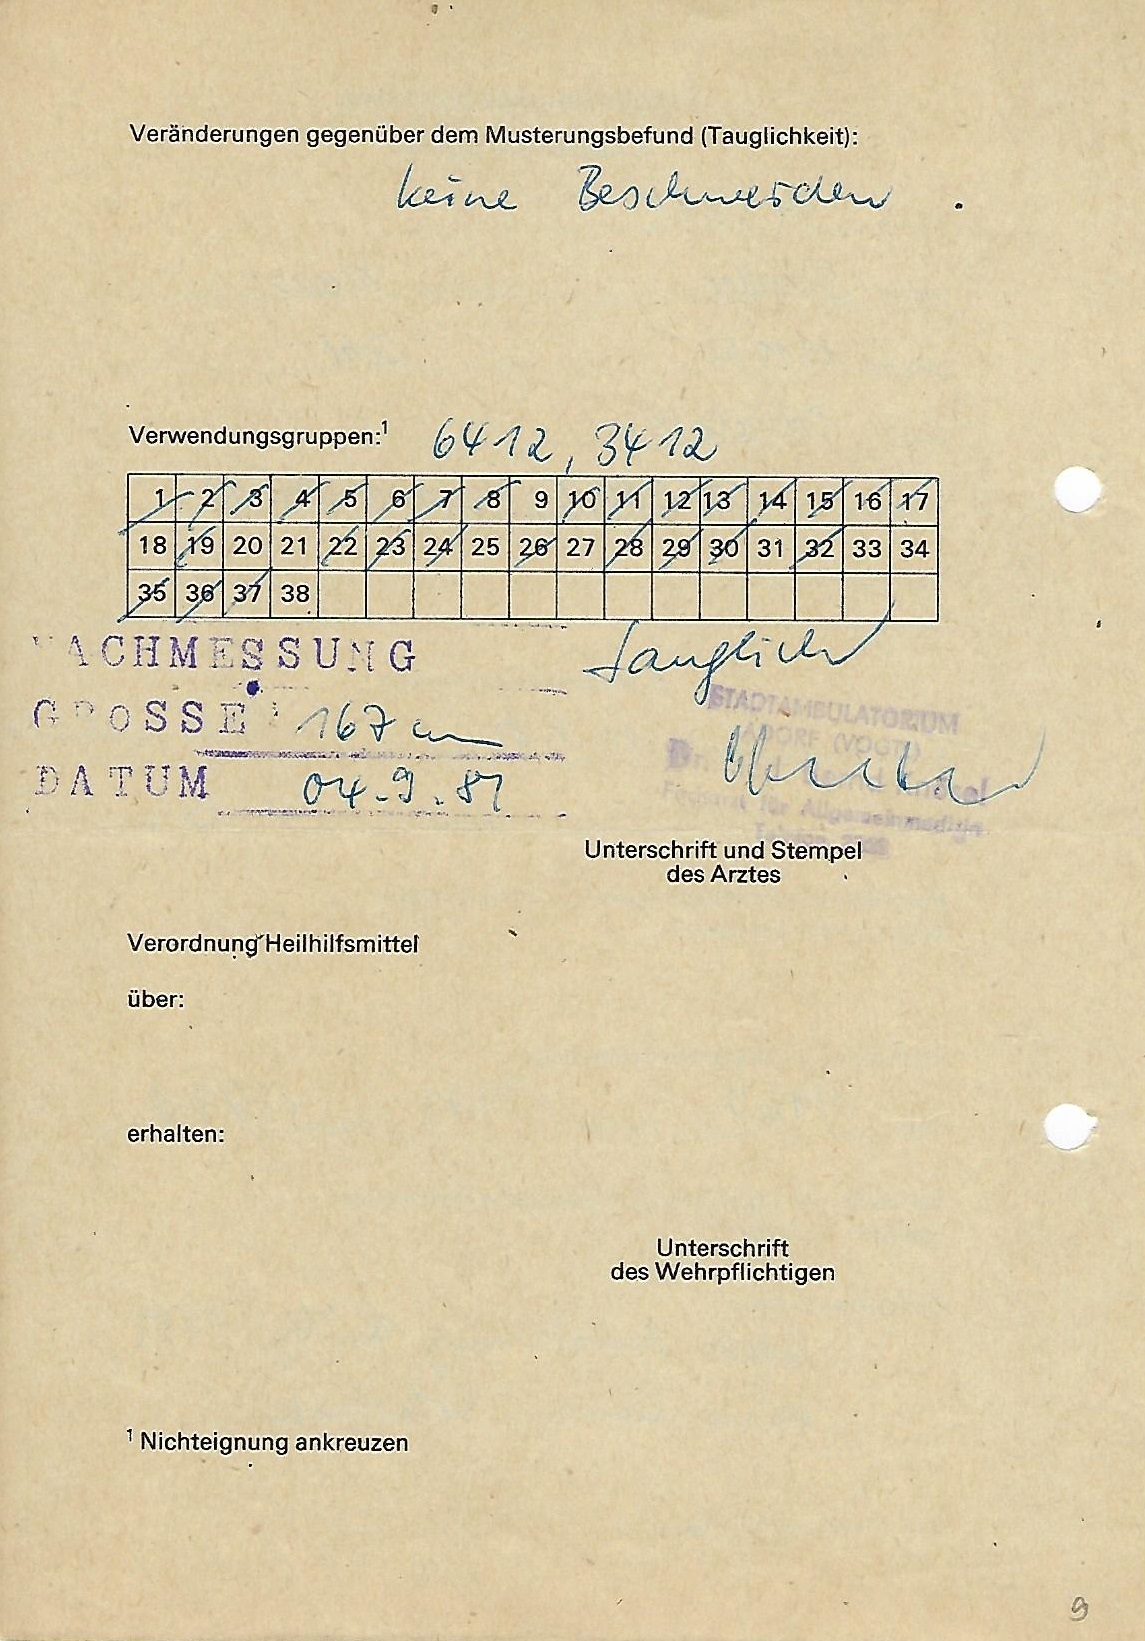 Veränderungen gegenüber dem Musterungsbefund (Tauglichkeit):
keine Beschwerden .
Verwendungsgruppen:¹ 6412, 3412
1 2 3 4 5 6 7 8 9 10 11 12 13 14 15 16 17
18 19 20 21 22 23 24 25 26 27 28 29 30 31 32 33 34
35 36 37 38
NACHMESSUNG
tauglich
GROSSE: 167 cm
STADTAMBULATORIUM
(VOGTL)
DATUM 04.9.87
Facharzt für Allgemeinmedizin
Telefon
Unterschrift und Stempel
des Arztes
Verordnung Heilhilfsmittel
über:
erhalten:
Unterschrift
des Wehrpflichtigen
¹ Nichteignung ankreuzen
9